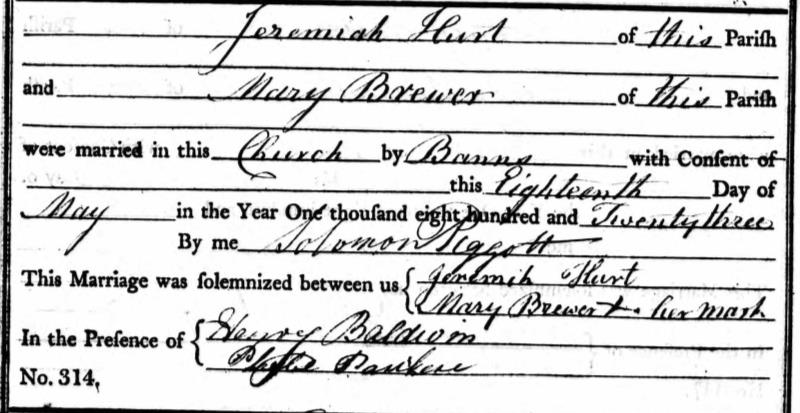 Jeremiah Hurt of this Pariſh
and Mary Brewer of this Pariſh
were married in this Church by Banns with Conſent of
this Eighteenth Day of
May in the Year One thouſand eight hundred and Twenty three
By me Solomon Piggott
This Marriage was ſolemnized between us { Jeremih Hurt
Mary Brewer + her mark
In the Preſence of { Henry Baldwin
No. 314,